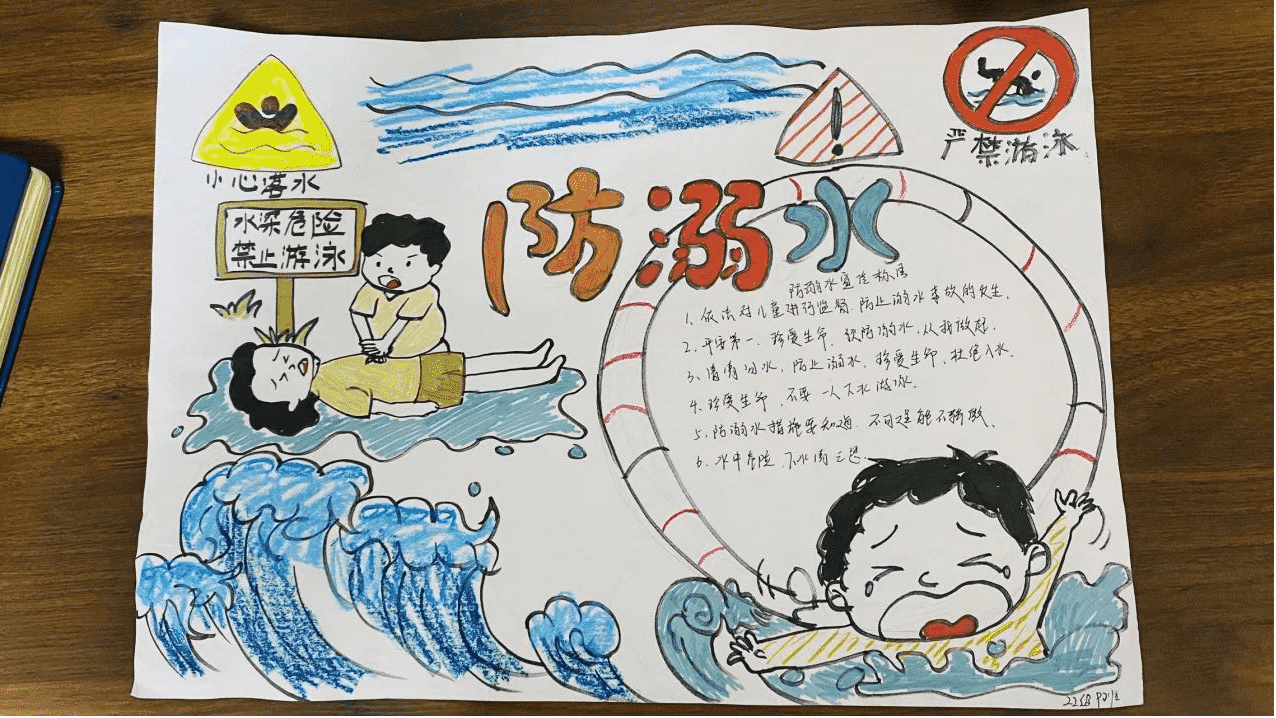 小心落水
严禁游泳
水深危险
禁止游泳
防溺水
防溺水宣传标语
1、依法对儿童进行监督,防止溺水事故的发生.
2、平安第一、珍爱生命、预防溺水、从我做起.
3、清清河水、防止溺水、珍爱生命、杜绝入水.
4、珍爱生命、不要一人下水游泳.
5、防溺水措施要知道、不可逞能不骄傲、
6、水中危险、下水需三思.